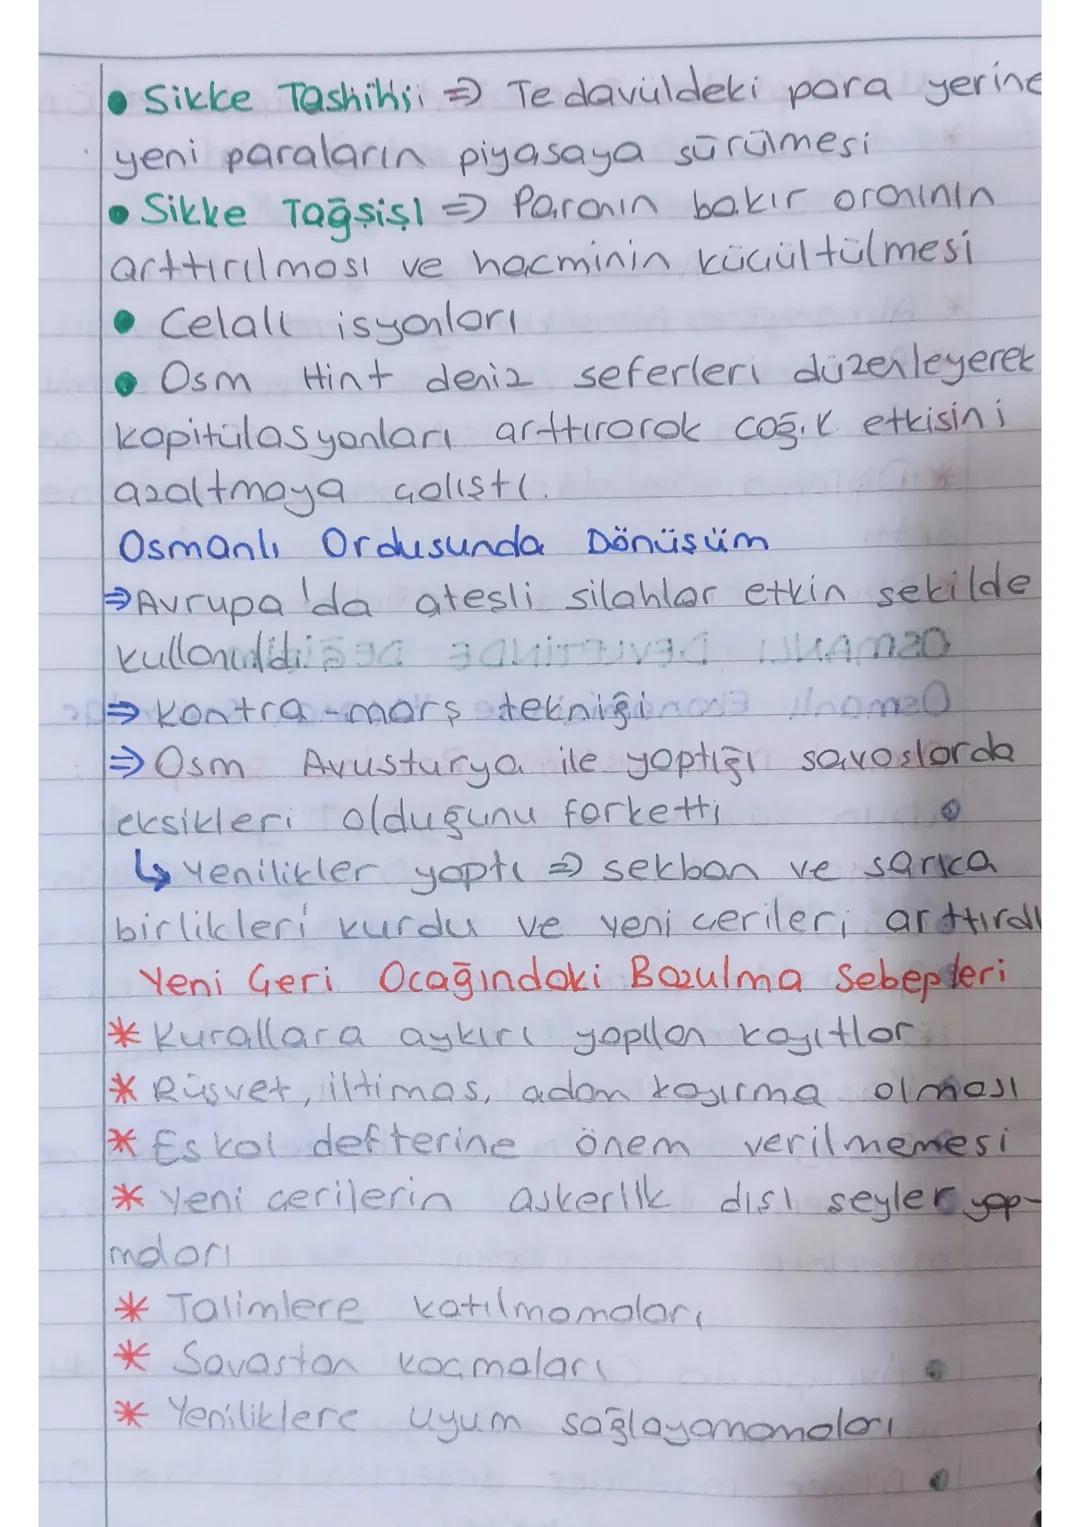 • Sikke Tashihi ⇒ Tedavüldeki para yerine
yeni paraların piyasaya sürülmesi
• Sikke Tağşişi ⇒ Paranın bakır oranının
arttırılması ve hacminin küçültülmesi
• Celali isyanları
• Osm Hint deniz seferleri düzenleyerek
kapitülasyonları arttırarak coğ. k. etkisini
azaltmaya çalıştı.
Osmanlı Ordusunda Dönüşüm
⇒ Avrupa'da ateşli silahlar etkin şekilde
kullanıldı
⇒ Kontra-marş tekniği
⇒ Osm Avusturya ile yaptığı savaşlarda
eksikleri olduğunu farketti
↳ Yenilikler yaptı ⇒ sekban ve sarıca
birlikleri kurdu ve yeni çerileri arttırdı
Yeni Çeri Ocağındaki Bozulma Sebepleri
* Kurallara aykırı yapılan kayıtlar
* Rüşvet, iltimas, adam kayırma olması
* Eşkal defterine önem verilmemesi
* Yeni çerilerin askerlik dışı şeyler yap-
maları
* Talimlere katılmamaları
* Savaştan kaçmaları
* Yeniliklere uyum sağlayamamaları